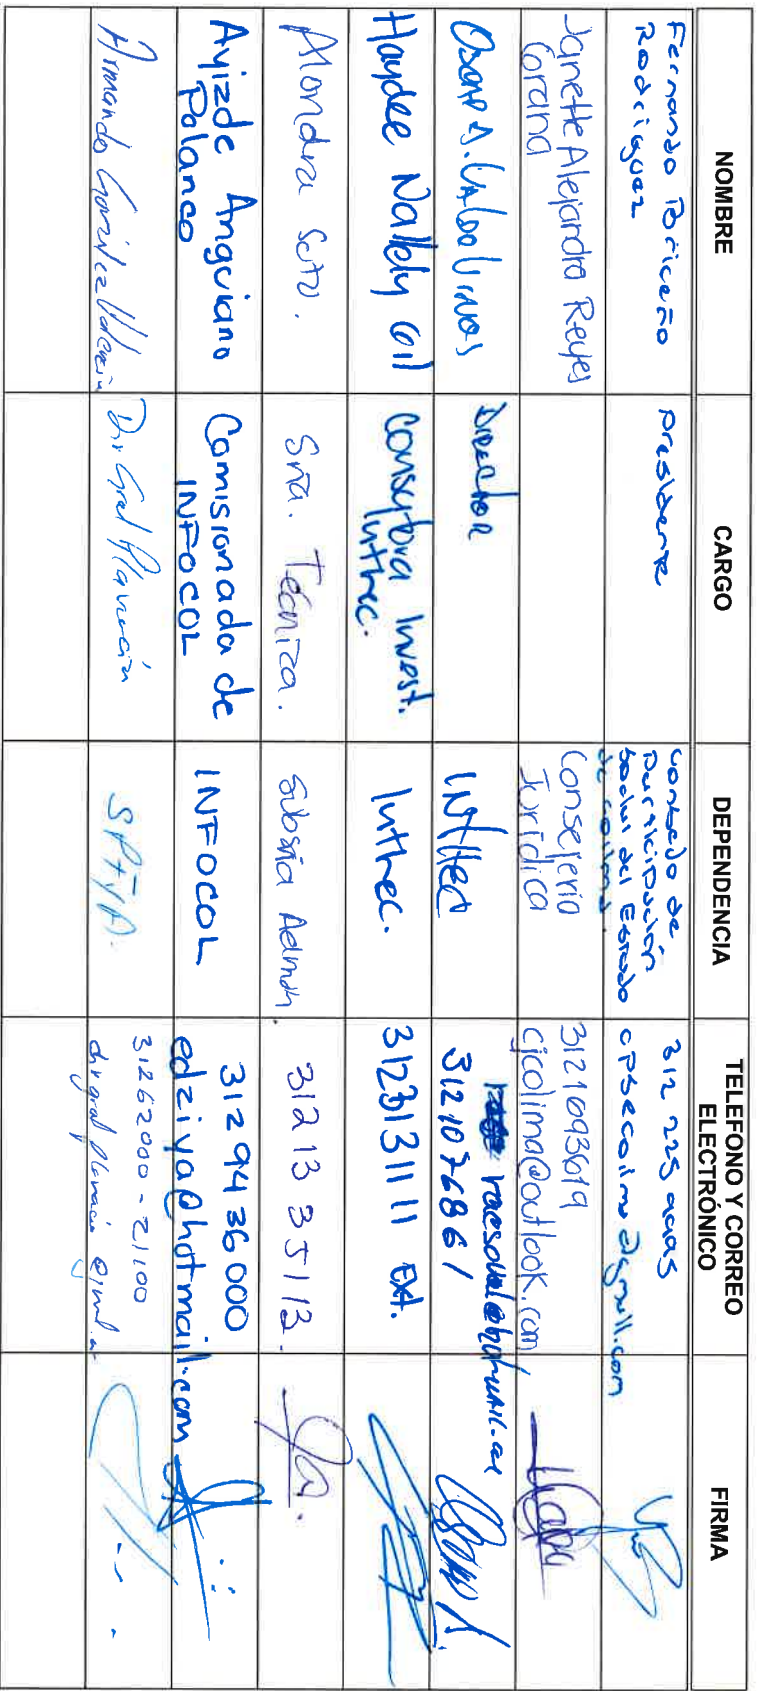 NOMBRE CARGO DEPENDENCIA TELEFONO Y CORREO ELECTRÓNICO FIRMA
Fernando Briceño
Rodriguez
Presidente
Consejo de
Participación
Social del Estado
de Colima.
312 225
cpsecolima@gmail.com
Janette Alejandra Reyes
Corana
Consejeria
Juridica
3121693619
cjcolima@outlook.com
Oscar Valdovinos
Director
3121076861
Haydee Nallely Gil
Consultora Invest.
Inthec.
Inthec.
3123131111 Ext.
Alondra Soto.
Sria. Técnica.
Subsria Admon.
31213 35113.
Ayizde Anguiano
Polanco
Comisionada de
INFOCOL
INFOCOL
3129436000
edziya@hotmail.com
Armando González Valencia
Dir Gral Planeación
SPFyA.
3162000-21100